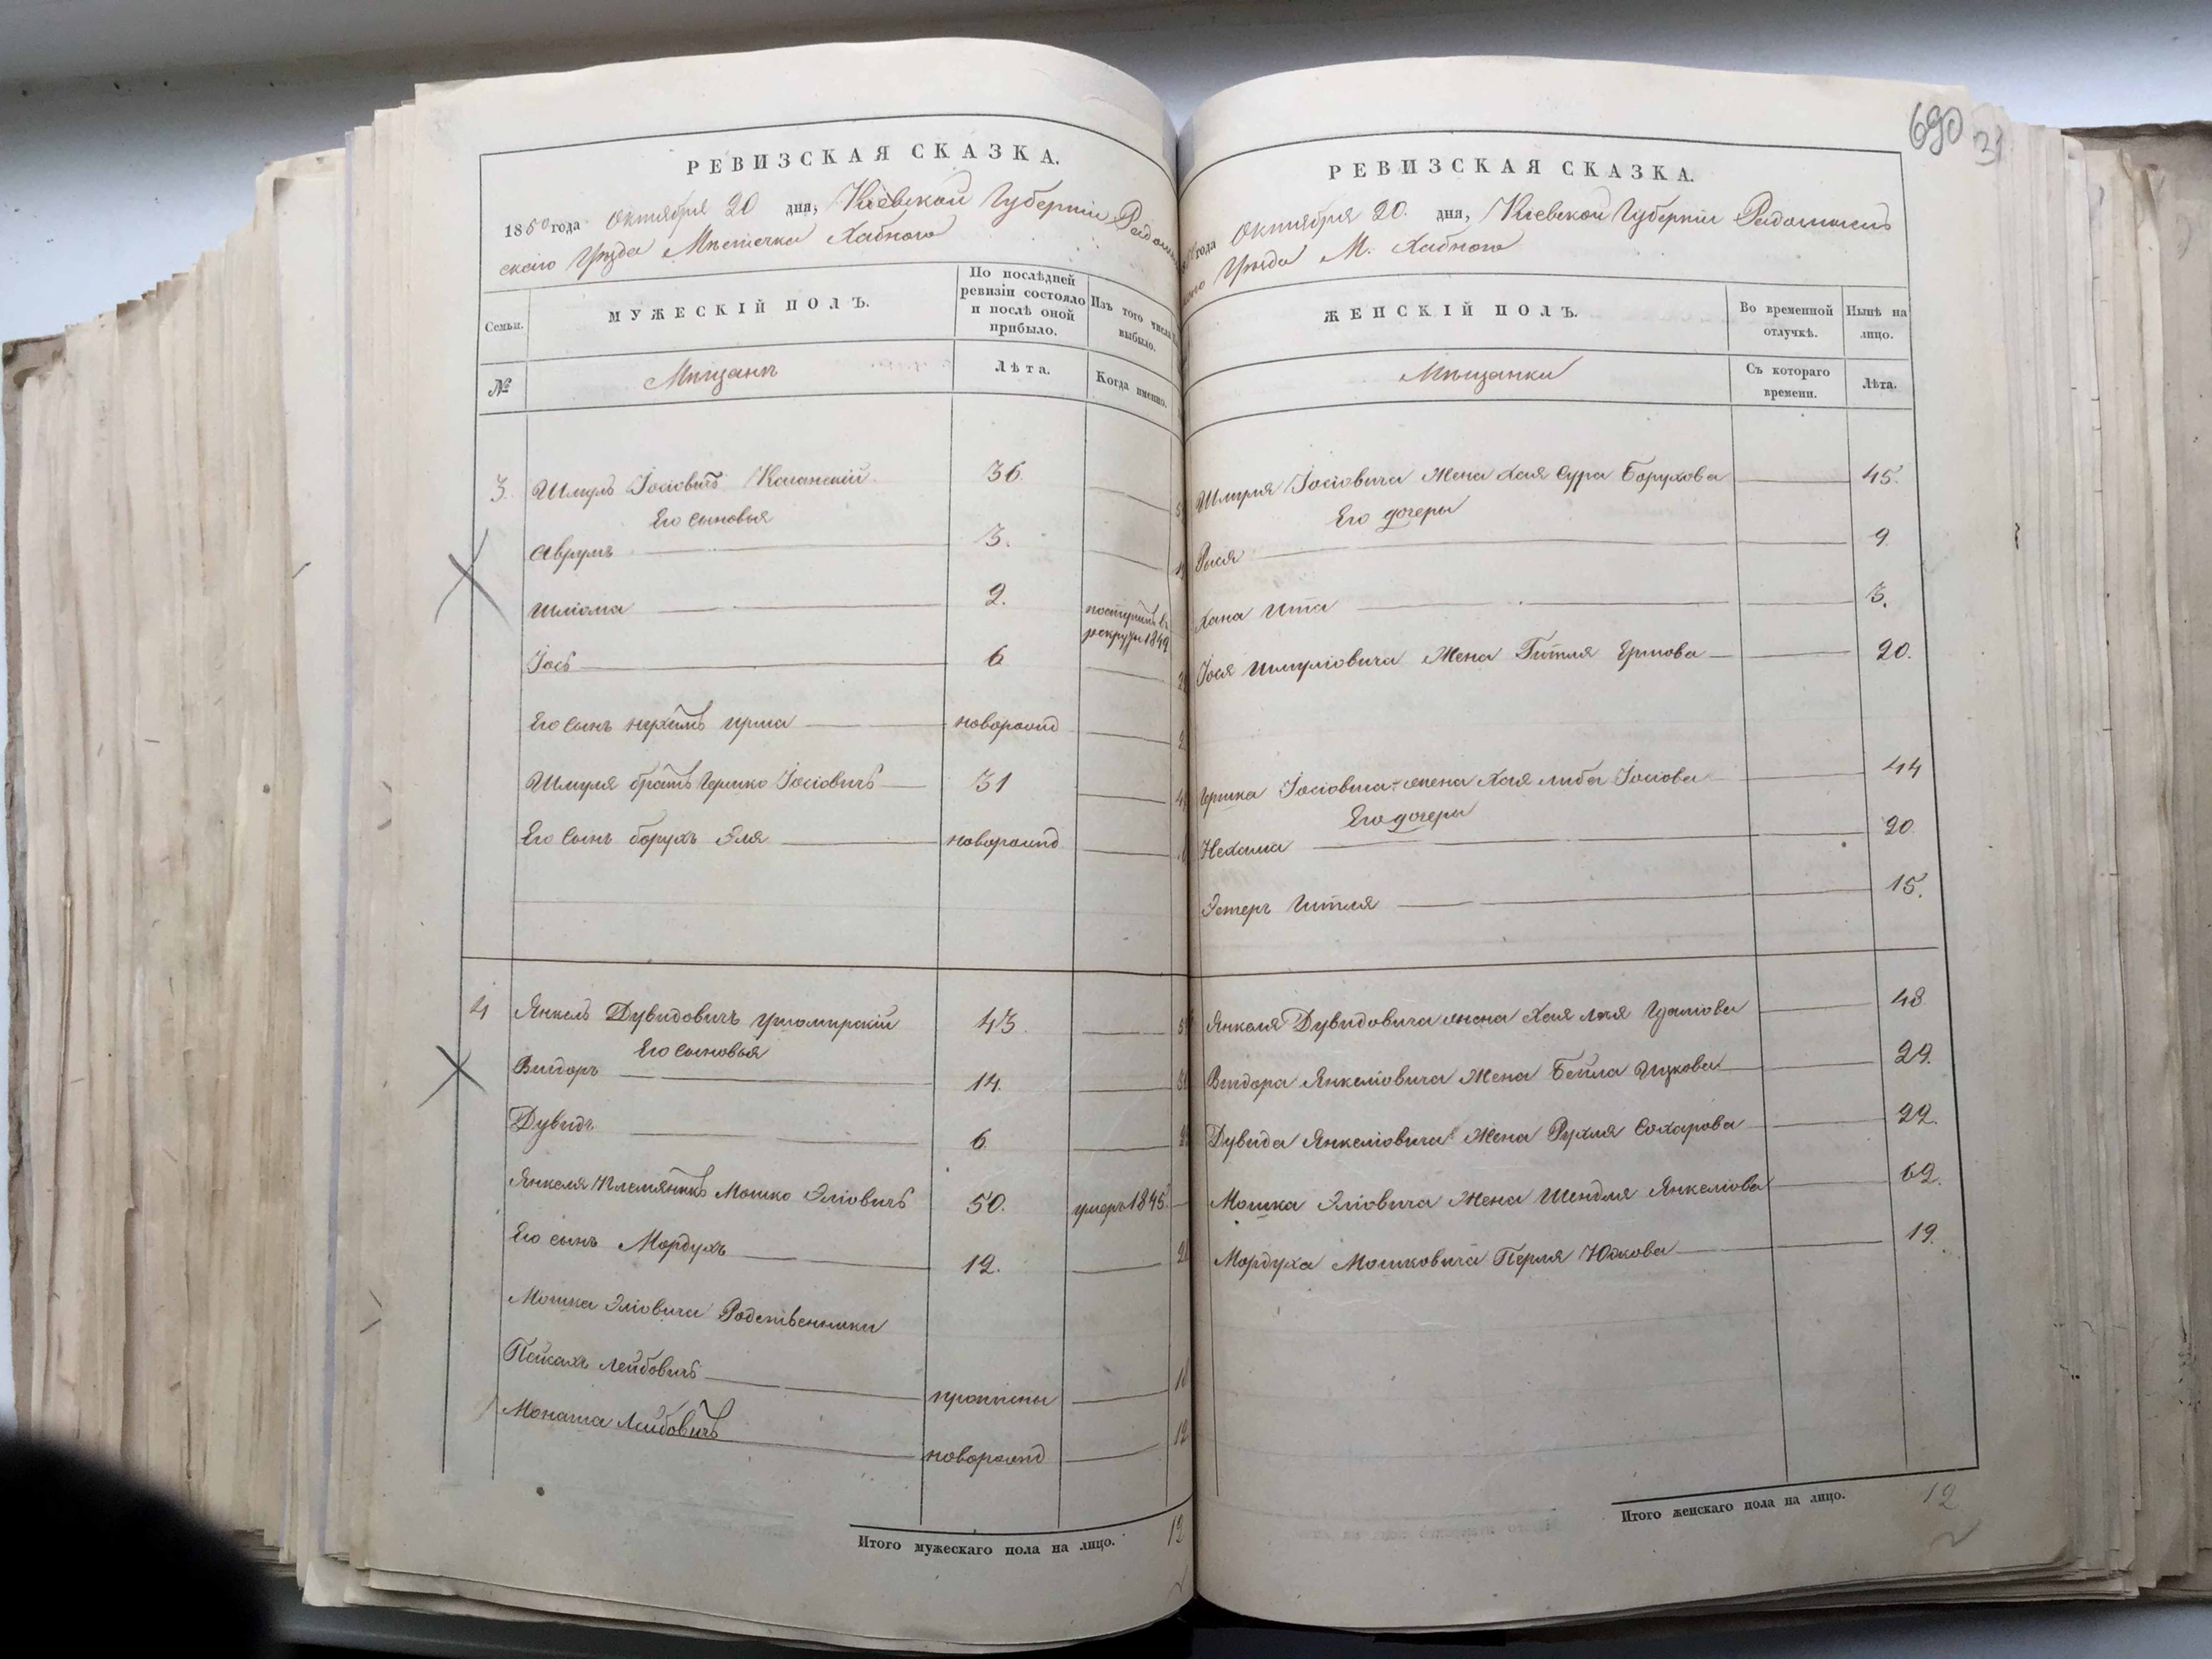 РЕВИЗСКАЯ СКАЗКА.
1850 года Октября 20 дня, Кіевской Губерніи Радомысль
скаго Уѣзда Мѣстечка Хабного
Семьи.
МУЖЕСКІЙ ПОЛЪ.
По послѣдней ревизіи состояло и послѣ оной прибыло.
Изъ того числа выбыло.
№
Мѣщанъ
Лѣта.
Когда именно.
3. Шмуль Іосіовичъ Каганскій 36
Его сыновья
Аврумъ 3.
Шліома 2. поступилъ въ рекруты 1849
Іось 6
Его сынъ Нухимъ Ирша новорожд
Шмуля братъ Гершко Іосіовичъ 31
Его сынъ Борухъ Эля новорожд
4 Янкель Дувидовичъ Ушомирскій 43
Его сыновья
Вигдоръ 14.
Дувидъ 6
Янкеля племянникъ Мошко Эліовичъ 50. умеръ 1845
Его сынъ Мордухъ 12.
Мошка Эліовича Родственники
Пейсахъ Лейбовичъ прописны
Монаша Лейбовичъ новорожд
Итого мужескаго пола на лицо. 12
690
31
РЕВИЗСКАЯ СКАЗКА.
года Октября 20. дня, Кіевской Губерніи Радомысль
Уѣзда М. Хабного
ЖЕНСКІЙ ПОЛЪ.
Во временной отлучкѣ.
Нынѣ на лицо.
Мѣщанки
Съ котораго времени.
Лѣта.
Шмуля Іосіовича Жена Хая Сура Борухова 45.
Его дочери
Рыся 9
Хана Ита 3.
Іося Шмуліовича Жена Гитля Ершова 20.
Гершка Іосіовича жена Хая Либа Іосіова 44
Его дочери
Нехама 20
Эстеръ Гитля 15.
Янкеля Дувидовича жена Хая Лея 48
Вигдора Янкеліовича Жена Бейла Ицкова 29.
Дувида Янкеліовича Жена Рухля Сохарова 22.
Мошка Эліовича Жена Шендля Янкеліова 62.
Мордуха Мошковича Перля Юдкова 19.
Итого женскаго пола на лицо. 12